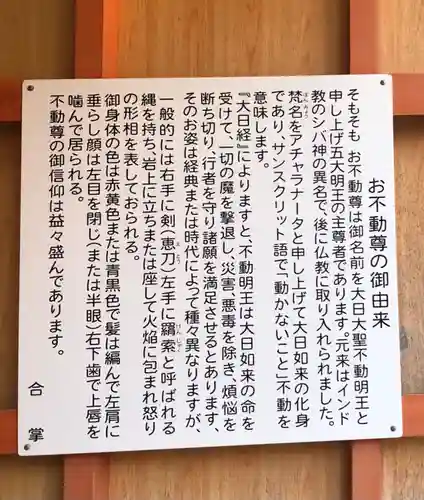 お不動尊の御由来
そもそも お不動尊は御名前を大日大聖不動明王と
申し上げ五大明王の主尊者であります。元来はインド
教のシバ神の異名で、後に仏教に取り入れられました。
梵名をアチャラナータと申し上げて大日如来の化身
であり、サンスクリット語で「動かないこと」「不動」を
意味します。
『大日経』によりますと、不動明王は大日如来の命を
受けて、一切の魔を撃退し、災害、悪毒を除き、煩悩を
断ち切り、行者を守り諸願を満足させるとあります、
そのお姿は経典または時代によって種々異なりますが、
一般的には右手に剣(恵刀)左手に羂索と呼ばれる
縄を持ち、岩上に立ちまたは座して火焔に包まれ怒り
の形相を表しておられる。
御身体の色は赤黄色または青黒色で髪は編んで左肩に
垂らし顔は左目を閉じ(または半眼)右下歯で上唇を
噛んで居られる。
不動尊の御信仰は益々盛んであります。
合掌